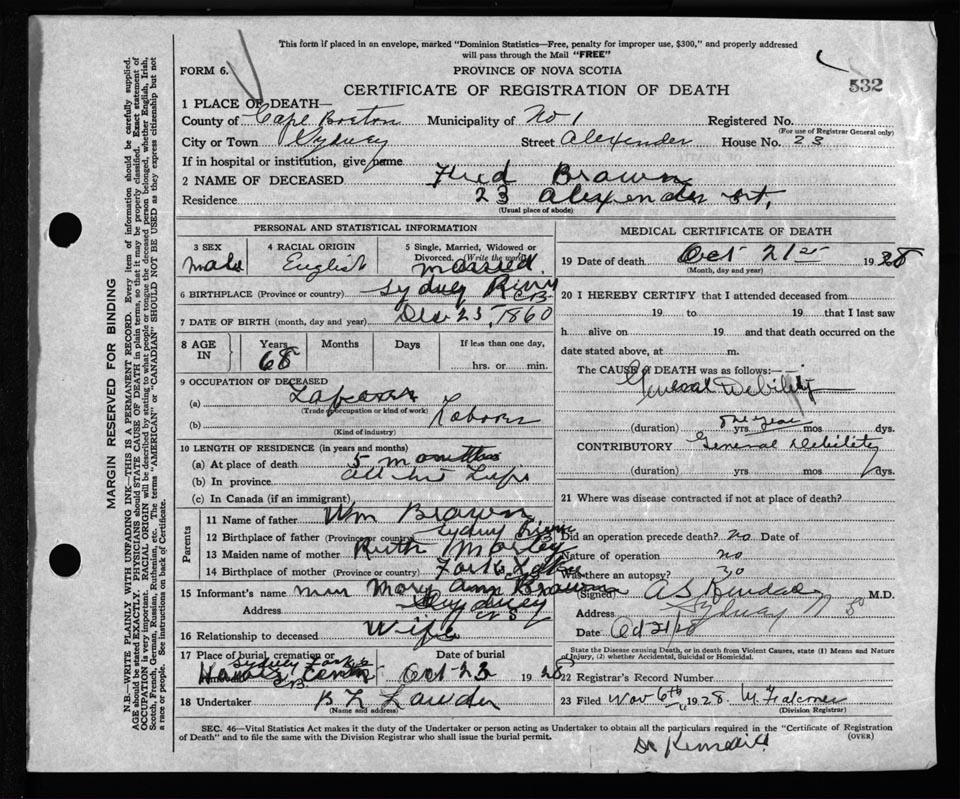 This form if placed in an envelope, marked "Dominion Statistics—Free, penalty for improper use, $300," and properly addressed
will pass through the Mail "FREE"
FORM 6.
PROVINCE OF NOVA SCOTIA
532
CERTIFICATE OF REGISTRATION OF DEATH
1 PLACE OF DEATH—
County of Cape Breton Municipality of No 1 Registered No.
(For use of Registrar General only)
City or Town Sydney Street Alexender House No. 23
If in hospital or institution, give name
2 NAME OF DECEASED Fred Brown
Residence 23 Alexender st,
(Usual place of abode)
PERSONAL AND STATISTICAL INFORMATION
3 SEX 4 RACIAL ORIGIN 5 Single, Married, Widowed or Divorced. (Write the word)
Male English married.
6 BIRTHPLACE (Province or country) Sydney River CB
7 DATE OF BIRTH (month, day and year) Dec 23, 1860
8 AGE IN Years Months Days If less than one day,
68 hrs. or min.
9 OCCUPATION OF DECEASED
(a) Laborer
(Trade, occupation or kind of work)
(b) Laborer
(Kind of industry)
10 LENGTH OF RESIDENCE (in years and months)
(a) At place of death 5 months
(b) In province all his Life
(c) In Canada (if an immigrant)
Parents
11 Name of father Wm Brown
12 Birthplace of father (Province or country) Sydney River
13 Maiden name of mother Ruth Morley
14 Birthplace of mother (Province or country)
15 Informant's name Mrs Mary Ann Brown
Address Sydney NS
16 Relationship to deceased Wife
17 Place of burial, cremation or Date of burial
Sydney C.B. Oct 23 1928
18 Undertaker
(Name and address)
MEDICAL CERTIFICATE OF DEATH
19 Date of death Oct 21st 1928
(Month, day and year)
20 I HEREBY CERTIFY that I attended deceased from
19 to 19 that I last saw
h alive on 19 and that death occurred on the
date stated above, at m.
The CAUSE of DEATH was as follows:—
General Debility
(duration) one year yrs. mos dys.
CONTRIBUTORY General Debility
(duration) yrs mos dys.
21 Where was disease contracted if not at place of death?
Did an operation precede death? no Date of
Nature of operation no
Was there an autopsy? no
(Signed) M.D.
Address Sydney N S
Date Oct 21/28
State the Disease causing Death, or in death from Violent Causes, state (1) Means and Nature
of Injury, (2) whether Accidental, Suicidal or Homicidal.
22 Registrar's Record Number
23 Filed Nov 6th 1928.
(Division Registrar)
SEC. 46—Vital Statistics Act makes it the duty of the Undertaker or person acting as Undertaker to obtain all the particulars required in the "Certificate of Registration
of Death" and to file the same with the Division Registrar who shall issue the burial permit.
(OVER)
MARGIN RESERVED FOR BINDING
N.B.—WRITE PLAINLY WITH UNFADING INK—THIS IS A PERMANENT RECORD. Every item of information should be carefully supplied.
AGE should be stated EXACTLY. PHYSICIANS should STATE CAUSE OF DEATH in plain terms, so that it may be properly classified. Exact statement of
OCCUPATION is very important. RACIAL ORIGIN will be described by stating to what people or tongue the deceased person belonged, whether English, Irish,
Scotch, French, German, Russian, Ruthenian, etc. The terms "AMERICAN" or "CANADIAN" SHOULD NOT BE USED as they express citizenship but not
a race or people. See instructions on back of Certificate.